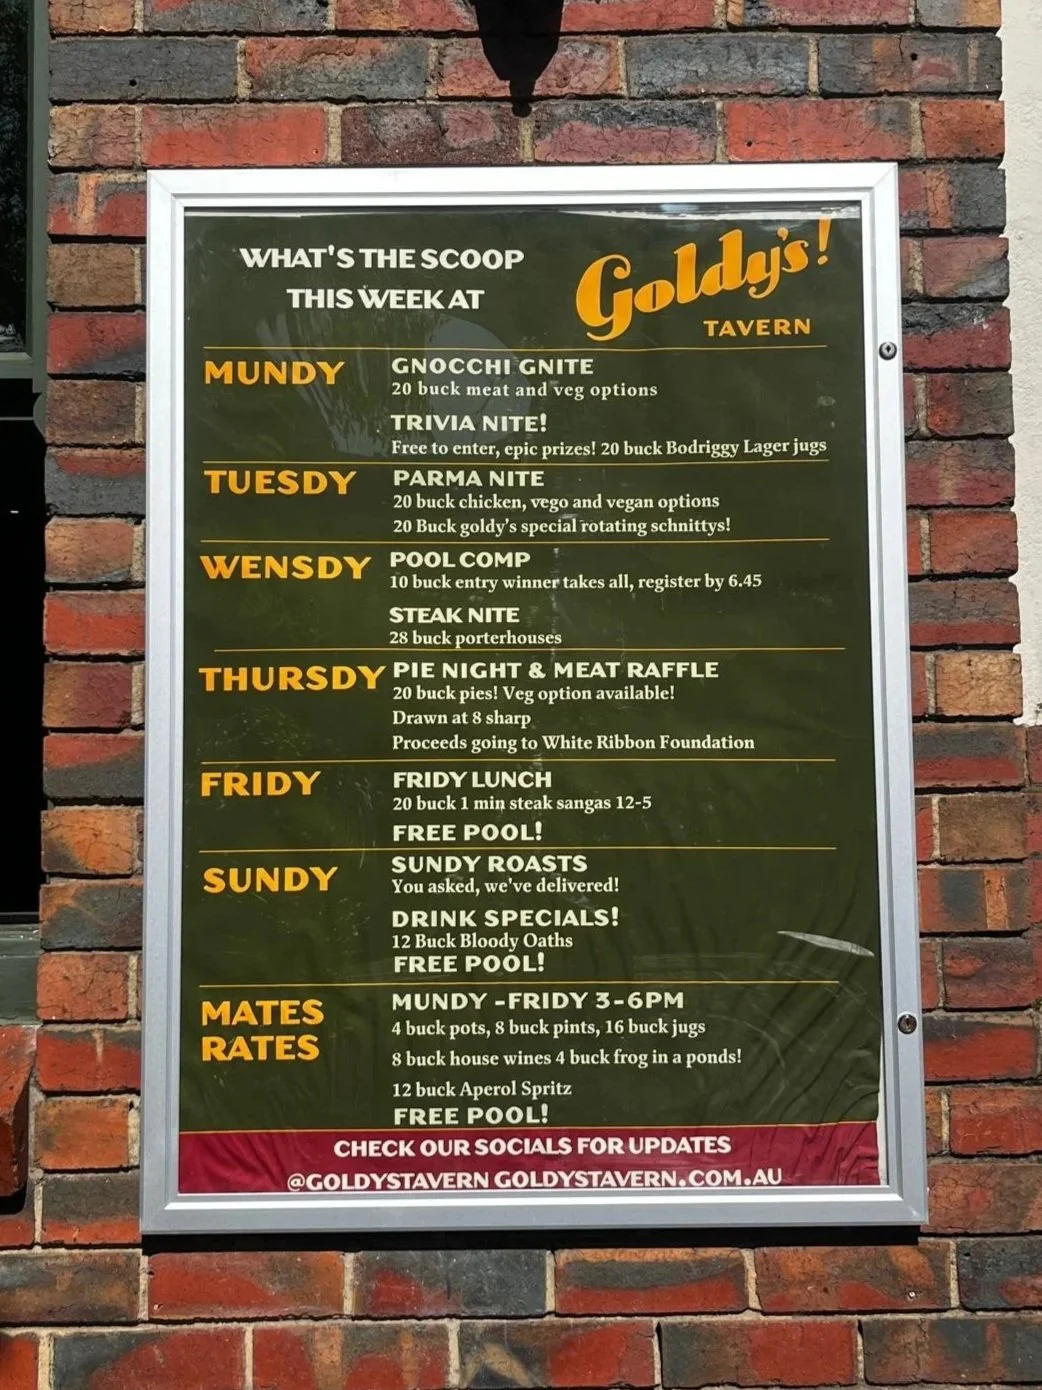 WHAT'S THE SCOOP
THIS WEEK AT
Goldy's!
TAVERN
MUNDY
GNOCCHI GNITE
20 buck meat and veg options
TRIVIA NITE!
Free to enter, epic prizes! 20 buck Bodriggy Lager jugs
TUESDY
PARMA NITE
20 buck chicken, vego and vegan options
20 Buck goldy's special rotating schnittys!
WENSDY
POOL COMP
10 buck entry winner takes all, register by 6.45
STEAK NITE
28 buck porterhouses
THURSDY
PIE NIGHT & MEAT RAFFLE
20 buck pies! Veg option available!
Drawn at 8 sharp
Proceeds going to White Ribbon Foundation
FRIDY
FRIDY LUNCH
20 buck 1 min steak sangas 12-5
FREE POOL!
SUNDY
SUNDY ROASTS
You asked, we've delivered!
DRINK SPECIALS!
12 Buck Bloody Oaths
FREE POOL!
MATES
RATES
MUNDY - FRIDY 3-6PM
4 buck pots, 8 buck pints, 16 buck jugs
8 buck house wines 4 buck frog in a ponds!
12 buck Aperol Spritz
FREE POOL!
CHECK OUR SOCIALS FOR UPDATES
@GOLDYSTAVERN GOLDYSTAVERN.COM.AU